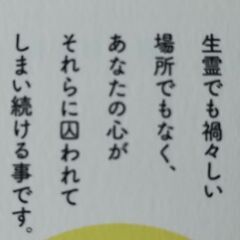 生霊でも禍々しい
場所でもなく、
あなたの心が
それらに囚われて
しまい続ける事です。